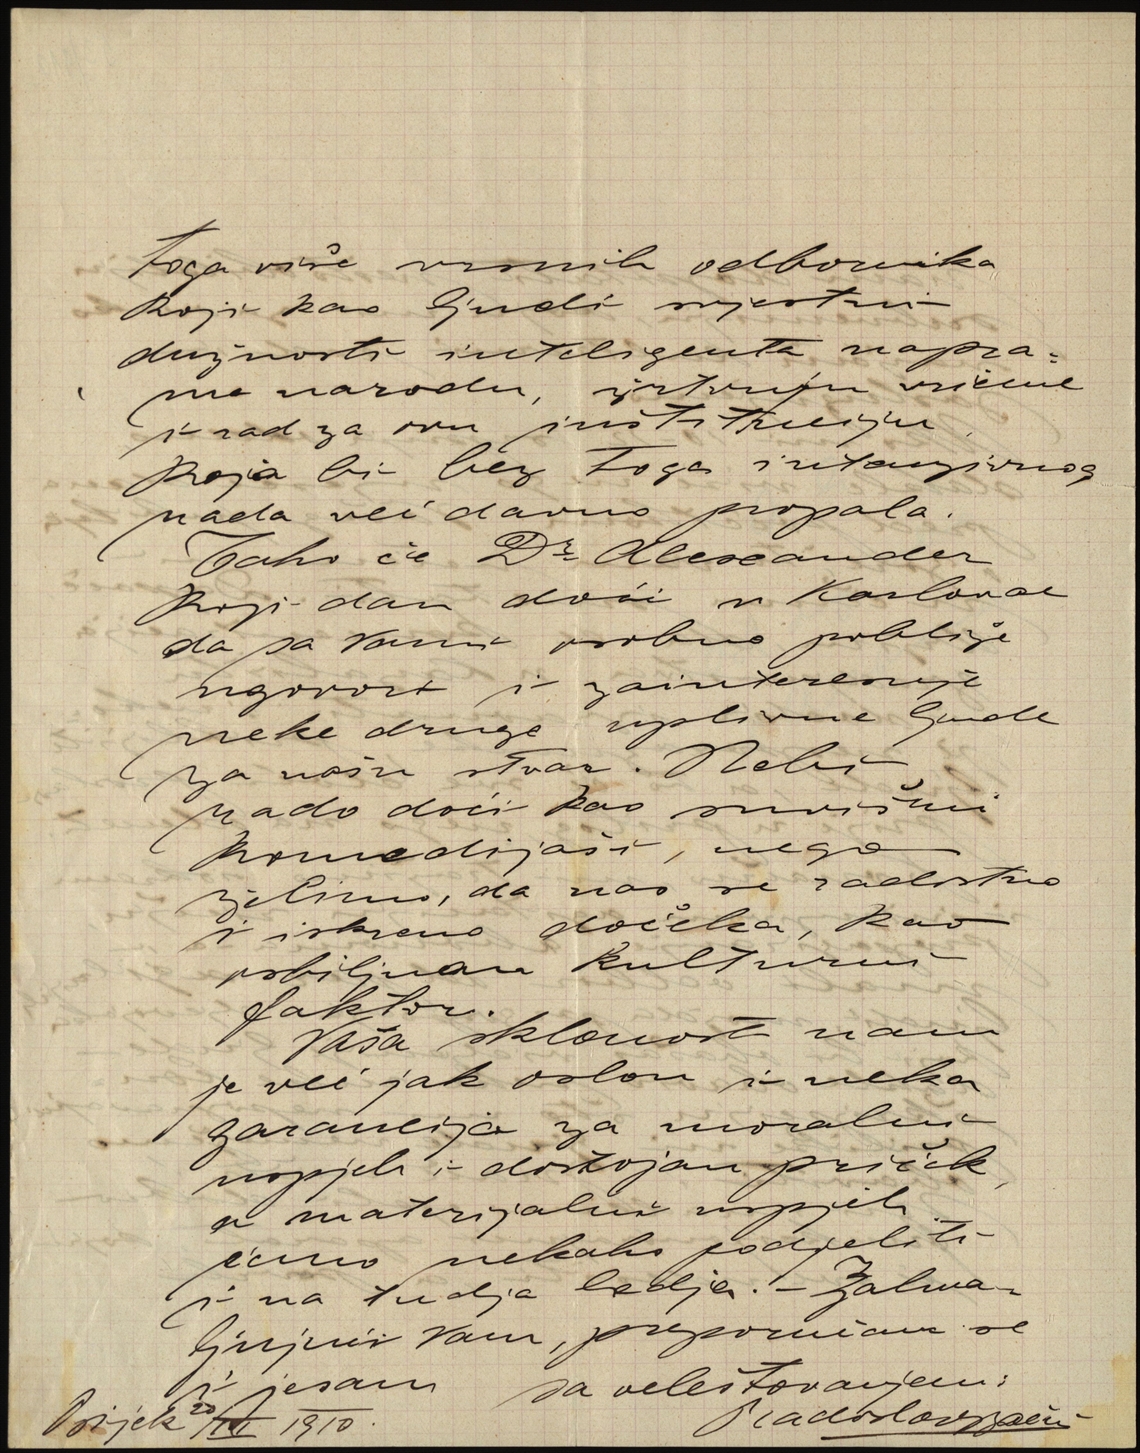 toga više vrsnih odbornika
koji kao ljudi svjestni
dužnosti inteligenta napra=
ma narodu, žrtvuju vrieme
i rad za ovu inštituciju
koja bi bez toga intenzivnog
rada već davno propala.
Tako će Dr. Alexander
koji dan doći u Karlovac
da sa Vami osobno pobliže
ugovori i zainteresuje
neke druge uplivne ljude
za našu stvar. Nebi
rado doći kao suvišni
komedijaši, nego
želimo, da nas se radostno
i iskreno dočeka, kao
ozbiljnan kulturni
faktor.
Vaša sklonost nam
je već jak oslon i neka
garancija za moralni
uspjeh i dostojan priček,
a materijalni uspjeh
ćemo nekako podjeliti
i na tudja ledja. – Zahva-
ljujući Vam, preporučam se
i jesam sa veleštovanjem:
Osijek 20/III 1910.